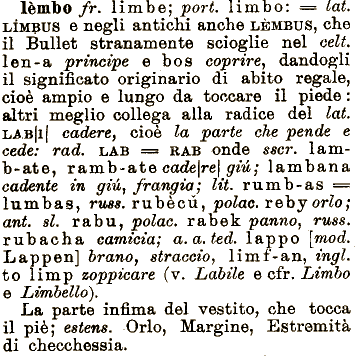 lèmbo fr. limbe; port. limbo: = lat.
LÍMBUS e negli antichi anche LÈMBUS, che
il Bullet stranamente scioglie nel celt.
len-a principe e bos coprire, dandogli
il significato originario di abito regale,
cioè ampio e lungo da toccare il piede:
altri meglio collega alla radice del lat.
LAB|ì| cadere, cioè la parte che pende e
cede: rad. LAB = RAB onde sscr. lam-
b-ate, ramb-ate cade|re| giú; lambana
cadente in giú, frangia; lit. rumb-as =
lumbas, russ. rubècŭ, polac. reby orlo;
ant. sl. rabu, polac. rabek panno, russ.
rubacha camicia; a. a. ted. lappo [mod.
Lappen] brano, straccio, limf-an, ingl.
to limp zoppicare (v. Labile e cfr. Limbo
e Limbello).
La parte infima del vestito, che tocca
il piè; estens. Orlo, Margine, Estremità
di checchessia.